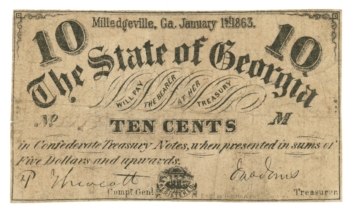 Milledgeville, Ga. January 1st 1863.
10 10
The State of Georgia
WILL PAY THE BEARER AT HER TREASURY
TEN CENTS
No M
in Confederate Treasury Notes, when presented in sums of
Five Dollars and upwards.
Compt Genl Treasurer